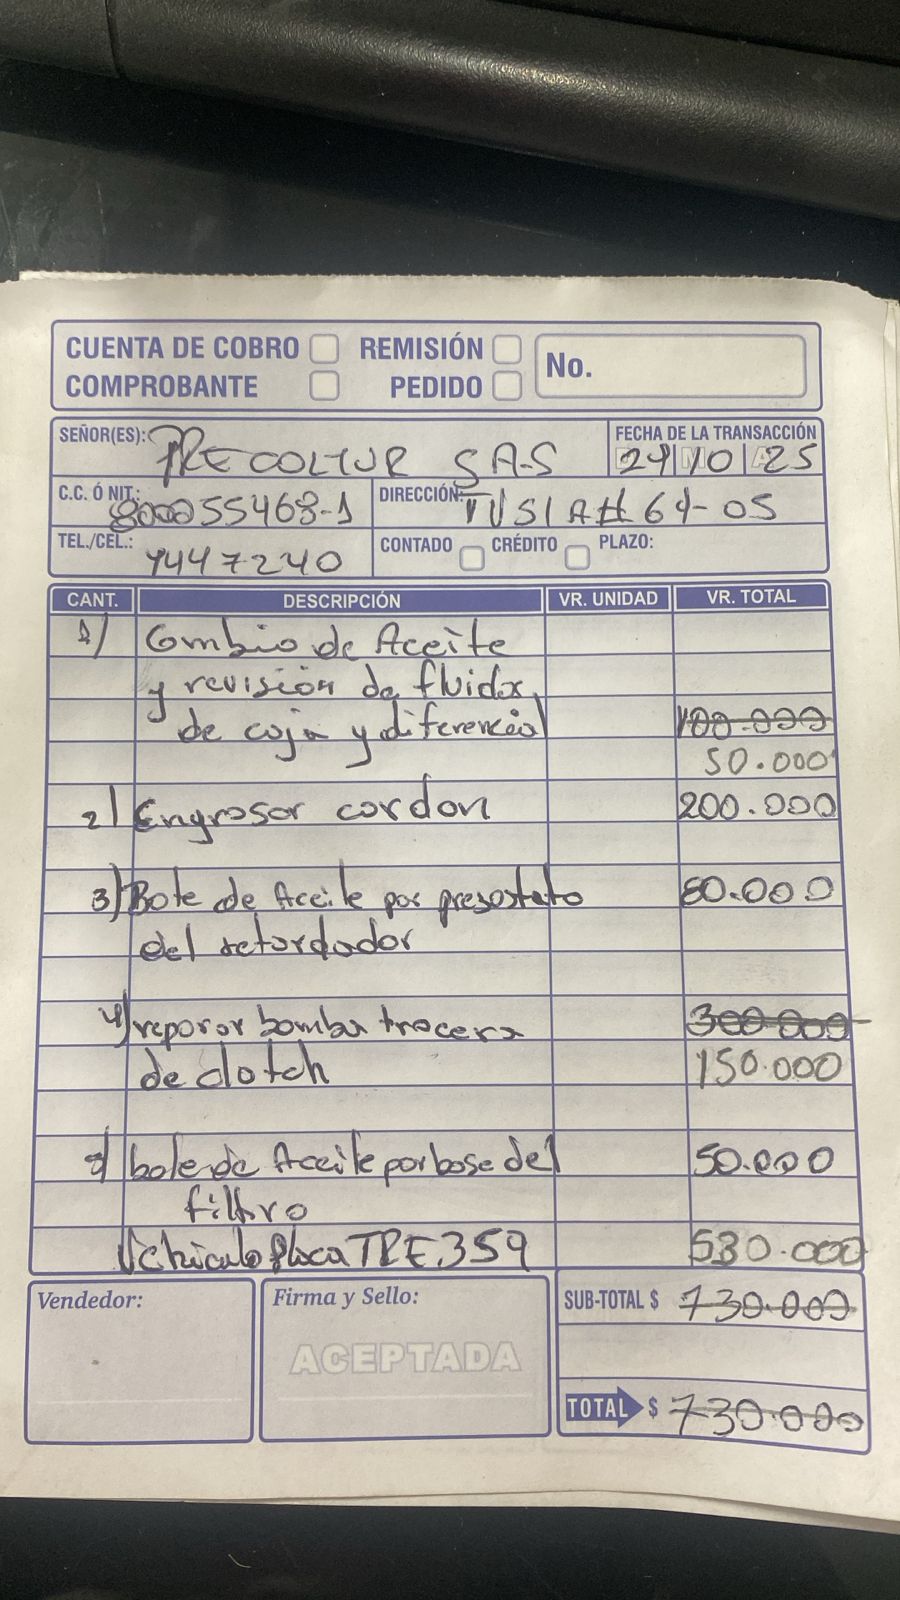 CUENTA DE COBRO REMISIÓN No.
COMPROBANTE PEDIDO
SEÑOR(ES): PRECOLTUR SAS FECHA DE LA TRANSACCIÓN
24 10 25
C.C. Ó NIT.: 800055468-1 DIRECCIÓN: TV51A# 64-05
TEL./CEL.: 4447240 CONTADO CRÉDITO PLAZO:
CANT. DESCRIPCIÓN VR. UNIDAD VR. TOTAL
1) Cambio de Aceite
y revisión de fluidos
de caja y diferencial 100.000
50.000
2) Engrasar cardon 200.000
3) Bote de Aceite por presostato 80.000
del retardador
4) reparar bomba tracera 300.000
de clotch 150.000
5) bote de Aceite por base del 50.000
filtro
Vehiculo placa TRE359 530.000
Vendedor: Firma y Sello: SUB-TOTAL $ 730.000
ACEPTADA
TOTAL $ 730.000